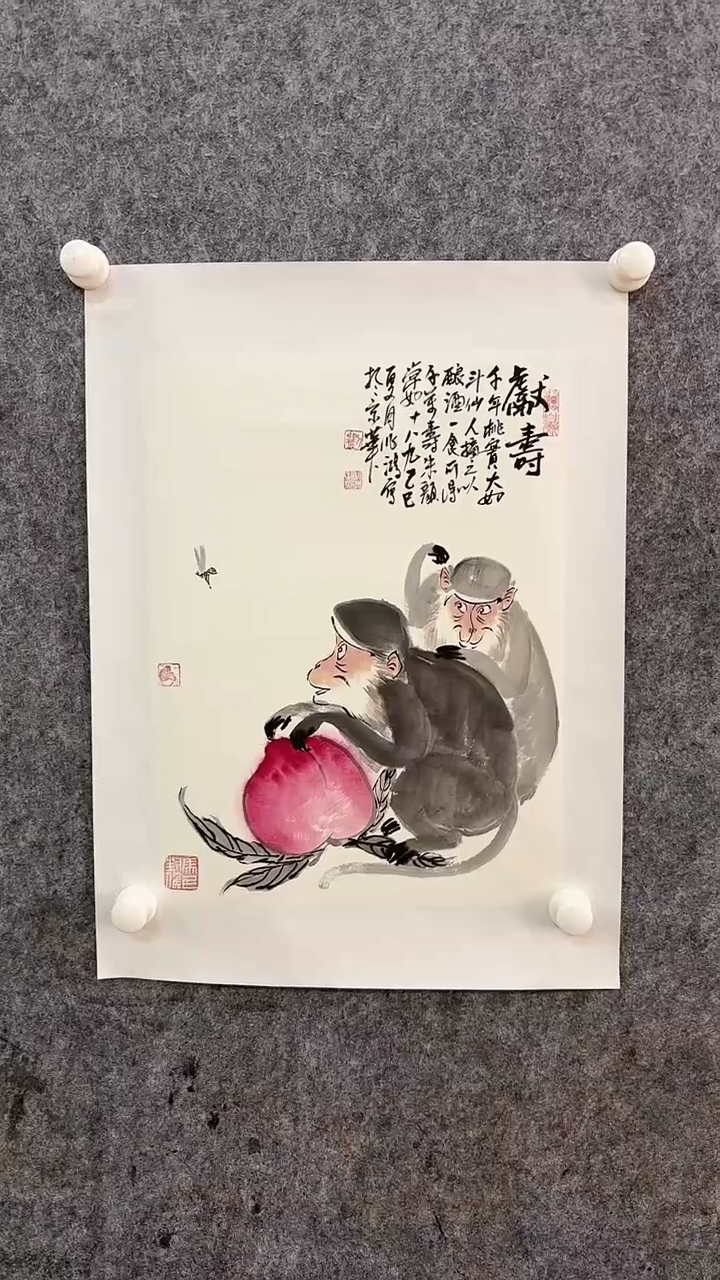 獻壽
千年桃實大如
斗仙人摘之以
釀酒一食可得
千萬壽朱顏
常如十八九乙巳
夏月 寫
於京華